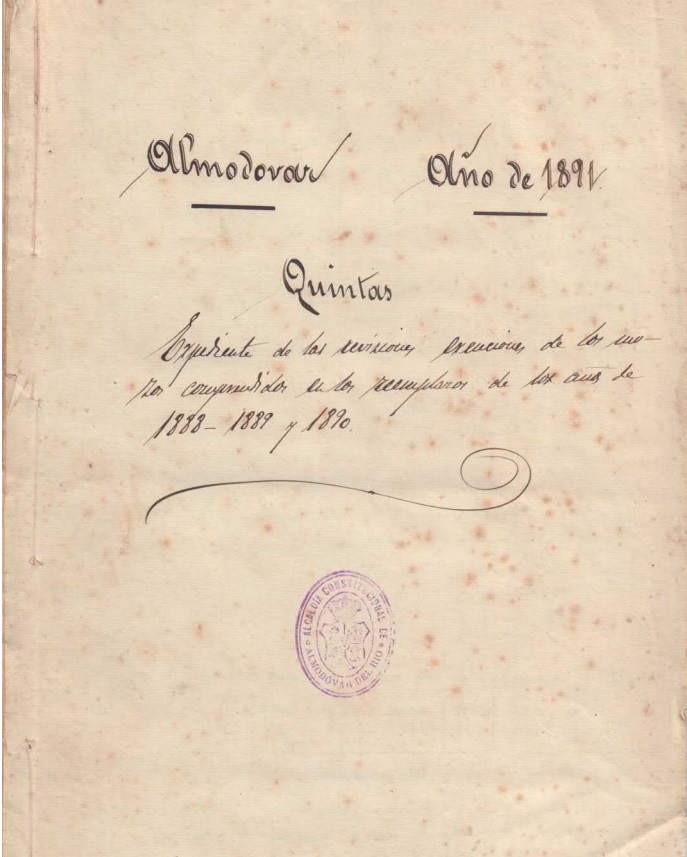 Almodovar Año de 1891.
Quintas
Expediente de las revisiones exenciones de los mo-
zos comprendidos en los reemplazos de los años de
1888 - 1889 y 1890.
ALCALDIA CONSTITUCIONAL DE
ALMODOVAR DEL RIO